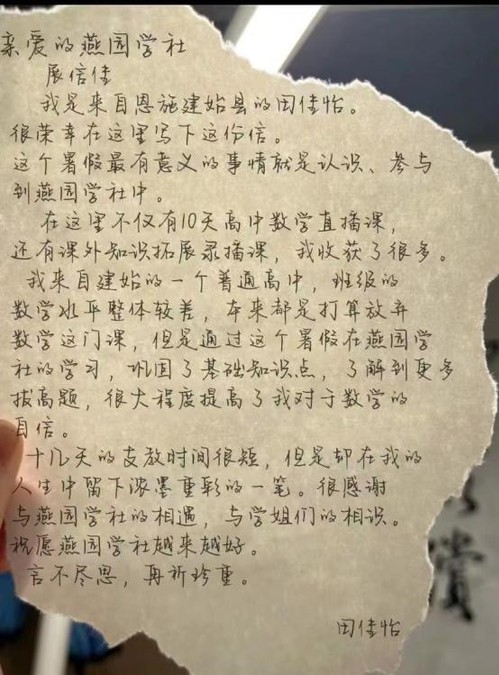 亲爱的燕园学社
展信佳
我是来自恩施建始县的田佳怡。
很荣幸在这里写下这份信。
这个暑假最有意义的事情就是认识、参与
到燕园学社中。
在这里不仅有10天高中数学直播课，
还有课外知识拓展录播课，我收获了很多。
我来自建始的一个普通高中，班级的
数学水平整体较差，本来都是打算放弃
数学这门课，但是通过这个暑假在燕园学
社的学习，巩固了基础知识点，了解到更多
拔高题，很大程度提高了我对于数学的
自信。
十几天的支教时间很短，但是却在我的
人生中留下浓墨重彩的一笔。很感谢
与燕园学社的相遇，与学姐们的相识。
祝愿燕园学社越来越好。
言不尽思，再祈珍重。
田佳怡
赏